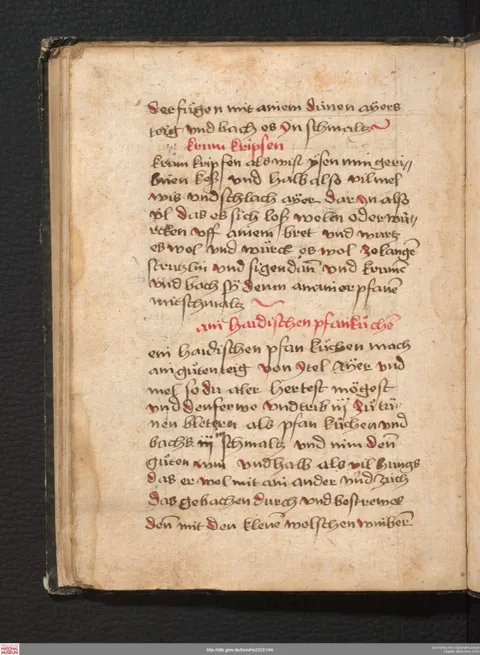 der fügen mit ainem dünen ayers
taig vnd bach es yn schmaltz
krum kripfen
krum kripfen als wisß ysen nim geri//
bnen keß vnd halb also vil mel
wis vnd schlach ayer dar yn also
vil das es sich loß welen oder wu//
rcken vff ainem bret vnd wurtz
es wol vnd würck es wol zo langen
strützlin vnd sigendan vnd krume
vnd bach sy denn an ainer pfanen
mit schmaltz
ain haidischen pfankuchen
ein haidischen pfan kuchen mach
ain guten teig von ytel Ayer vnd
mel so du aler hertest mögest
vnd den ferwe vnd trib iij Zu tü//
nen bletern als pfan kuchen vnd
bachs im schmaltz vnd nim den
guten vnd halb als vil hungs
das er wol mit ain ander vnd züch
das gebachen durch vnd bestrewes
den mit den klenen welschen winber